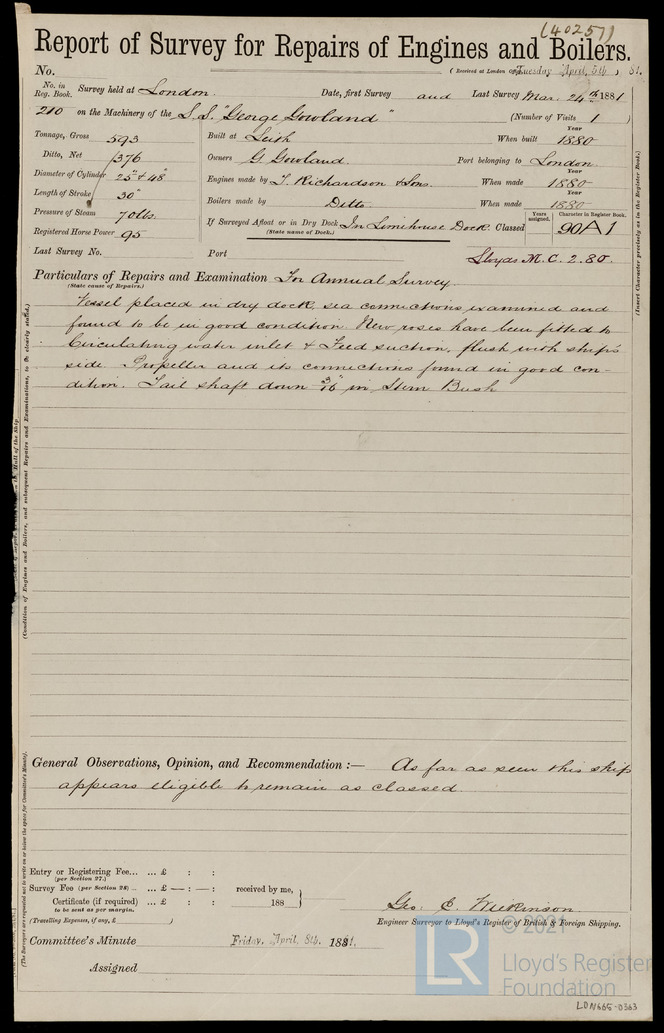 (40257)
Report of Survey for Repairs of Engines and Boilers.
No. (Received at London Office Tuesday April, 5th, 81.
No. in Reg. Book. Survey held at London. Date, first Survey and Last Survey Mar. 24th 1881
210 on the Machinery of the S.S. "George Gowland" (Number of Visits 1 )
Tonnage, Gross 593 Built at Leith When built Year 1880
Ditto, Net 376 Owners G. Gowland. Port belonging to London
Diameter of Cylinder 25" & 48" Engines made by T. Richardson & Sons. When made Year 1880
Length of Stroke 30" Boilers made by Ditto When made Year 1880
Pressure of Steam 70 lbs. If Surveyed Afloat or in Dry Dock In Limehouse Dock. Classed Years assigned. Character in Register Book. 90A1
(State name of Dock.)
Registered Horse Power 95
Last Survey No. Port Lloyds M.C. 2.80.
Particulars of Repairs and Examination For Annual Survey.
(State cause of Repairs.)
Vessel placed in dry dock, sea connections examined and
found to be in good condition. New roses have been fitted to
Circulating water inlet & Feed suction, flush with ship's
side. Propeller and its connections found in good con-
dition. Tail shaft down 3/16" in Stern Bush
(Insert Character precisely as in the Register Book.)
(Condition of Engines and Boilers, and subsequent Repairs and Examinations, to be clearly stated.)
General Observations, Opinion, and Recommendation :— As far as seen this ship
appears eligible to remain as classed.
(The Surveyors are requested not to write on or below the space for Committee's Minute).
Entry or Registering Fee... ... £ : :
(per Section 27.)
Survey Fee (per Section 28) .. ... £ — : — : received by me,
Certificate (if required) ... £ : : 188
to be sent as per margin.
Geo. C. Wilkinson.
(Travelling Expenses, if any, £ )
Engineer Surveyor to Lloyd's Register of British & Foreign Shipping.
Committee's Minute Friday, April, 8th, 1881.
Assigned
LR © 2021
Lloyd's Register
Foundation
LDN665-0363